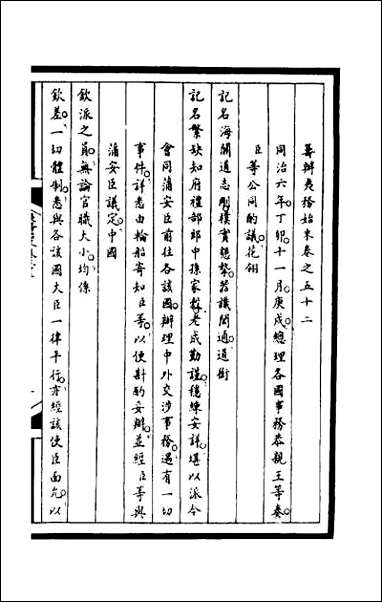 籌辦夷務始末卷之五十二
同治六年丁卯十一月庚戌。總理各國事務恭親王等奏。
臣等公同酌議。花翎
記名海關道志剛。樸實懇摯。器識閎通。道銜
記名繁缺知府禮部郎中孫家穀。老成勤謹。穩練安詳。堪以派令
會同蒲安臣前往各該國。辦理中外交涉事務。遇有一切
事件。詳悉由輪船寄知臣等。以便斟酌妥辦。並經臣等與
蒲安臣議定。中國
欽派之員。無論官職大小。均係
欽差。一切體制。悉與各該國大臣一律平行。亦經該使臣面允。以